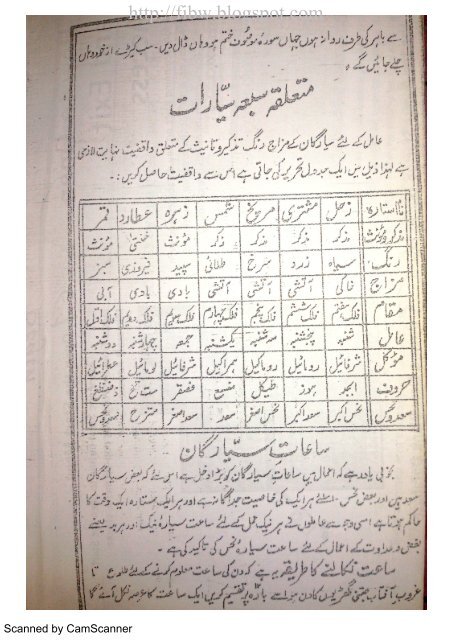 http://fibw.blogspot.com
سے باہر کی طرف روانہ ہوں جہاں سورہ مومنون ختم ہو وہاں ڈال دیں۔ سب کیڑے از خود وہاں
چلے جائیں گے۔
متعلقہ سبعہ سیّارات
عامل کے لئے سیارگان کے مزاج رنگ تذکیر و تانیث کے متعلق واقفیت نہایت لازمی
ہے لہٰذا ذیل میں ایک جدول تحریر کی جاتی ہے اس سے واقفیت حاصل کریں:۔
نام ستارہ زحل مشتری مریخ شمس زہرہ عطارد قمر
مذکر و مونث مذکر مذکر مذکر مذکر مؤنث خنثیٰ مؤنث
رنگ سیاہ زرد سرخ طلائی سپید فیروزی سبز
مزاج خاکی آتشی آتشی آتشی بادی بادی آبی
مقام فلک ہفتم فلک ششم فلک پنجم فلک چہارم فلک سوم فلک دوم فلک اول
عامل شنبہ پنجشنبہ سہ شنبہ یکشنبہ جمعہ چہارشنبہ دوشنبہ
مؤکل
حروف ابجد ہوز طیکل منسع فصقر شتثخ ذضظغ
سعد و نحس نحس اکبر سعد اکبر نحس اصغر سعد سعد اصغر ممتزج سعد و نحس
ساعاتِ سیّارگان
بخوبی یاد رہے کہ اعمال میں ساعات سیارگان کو بڑا دخل ہے اسی لئے کہ بعض سیارگان
سعد ہیں اور بعض نحس۔ اسلئے ہر ایک کی خاصیت جداگانہ ہے اور ہر ایک ستارہ ایک وقت کا
حاکم ہوتا ہے اسی وجہ سے عاملوں نے ہر نیک عمل کے لئے ساعت سیارہ نیک اور ہر بد یعنے
بغض و عداوت کے اعمال کے لئے ساعت سیارہ نحس کی تاکید کی ہے۔
ساعت نکالنے کا طریقہ یہ ہے کہ دن کی ساعت معلوم کرنے کے لئے طلوع تا
غروب آفتاب جتنی گھڑیوں کا دن ہو اسے بارہ پر تقسیم کریں ایک ساعت کا عرصہ نکل آئے گا
Scanned by CamScanner